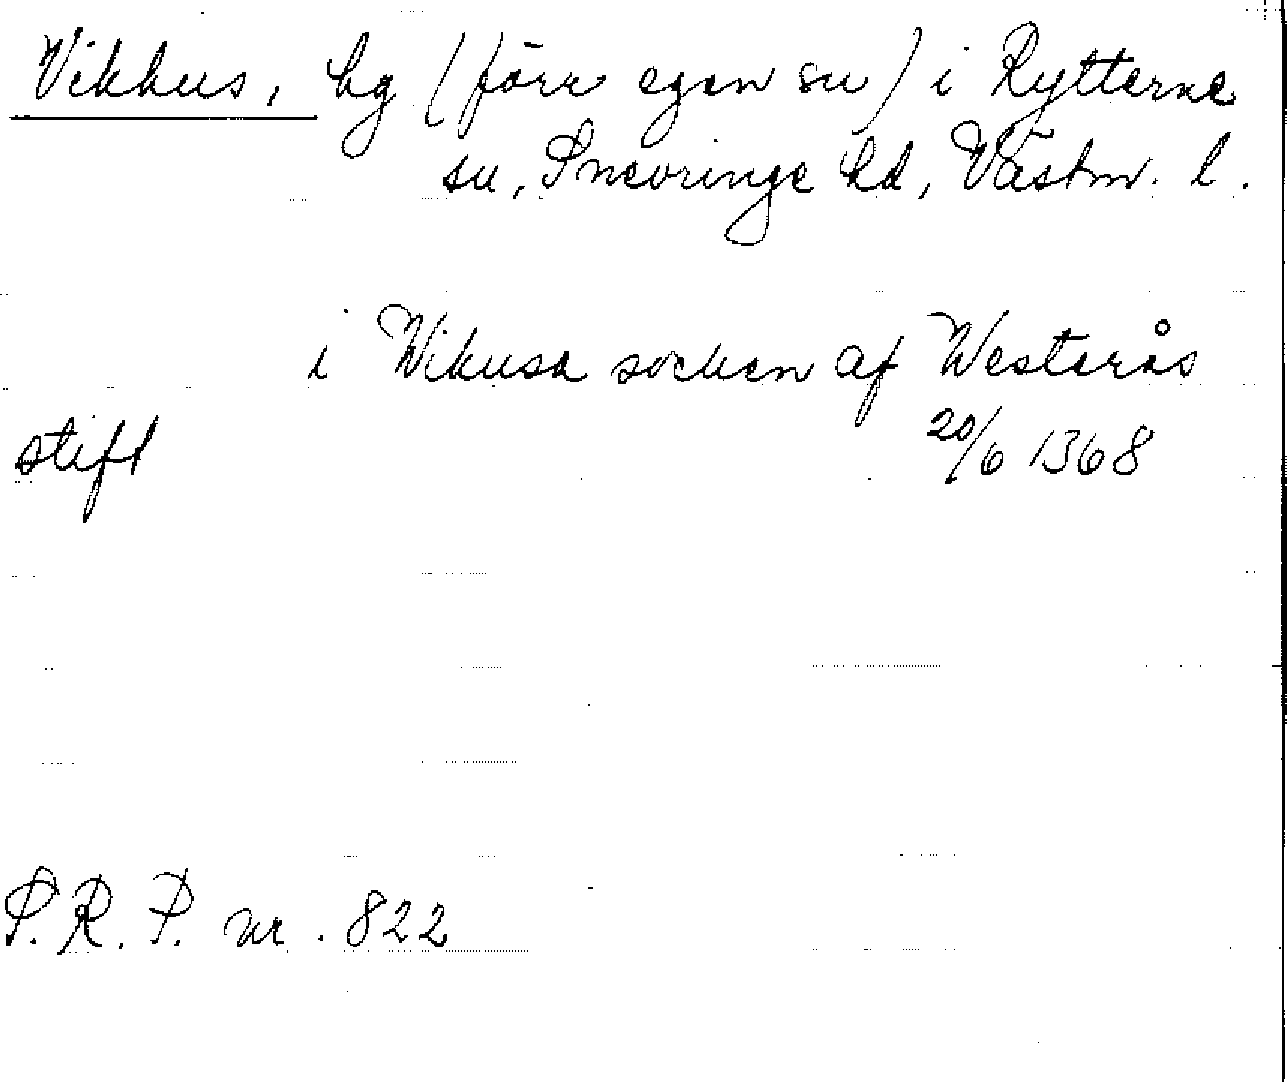 Vikhus, hg (förr egen sn) i Rytterne
sn, Snevringe hd, Västm. l.
i Wikusa socken af Westerås
stift 20/6 1368
S.R.P. nr. 822